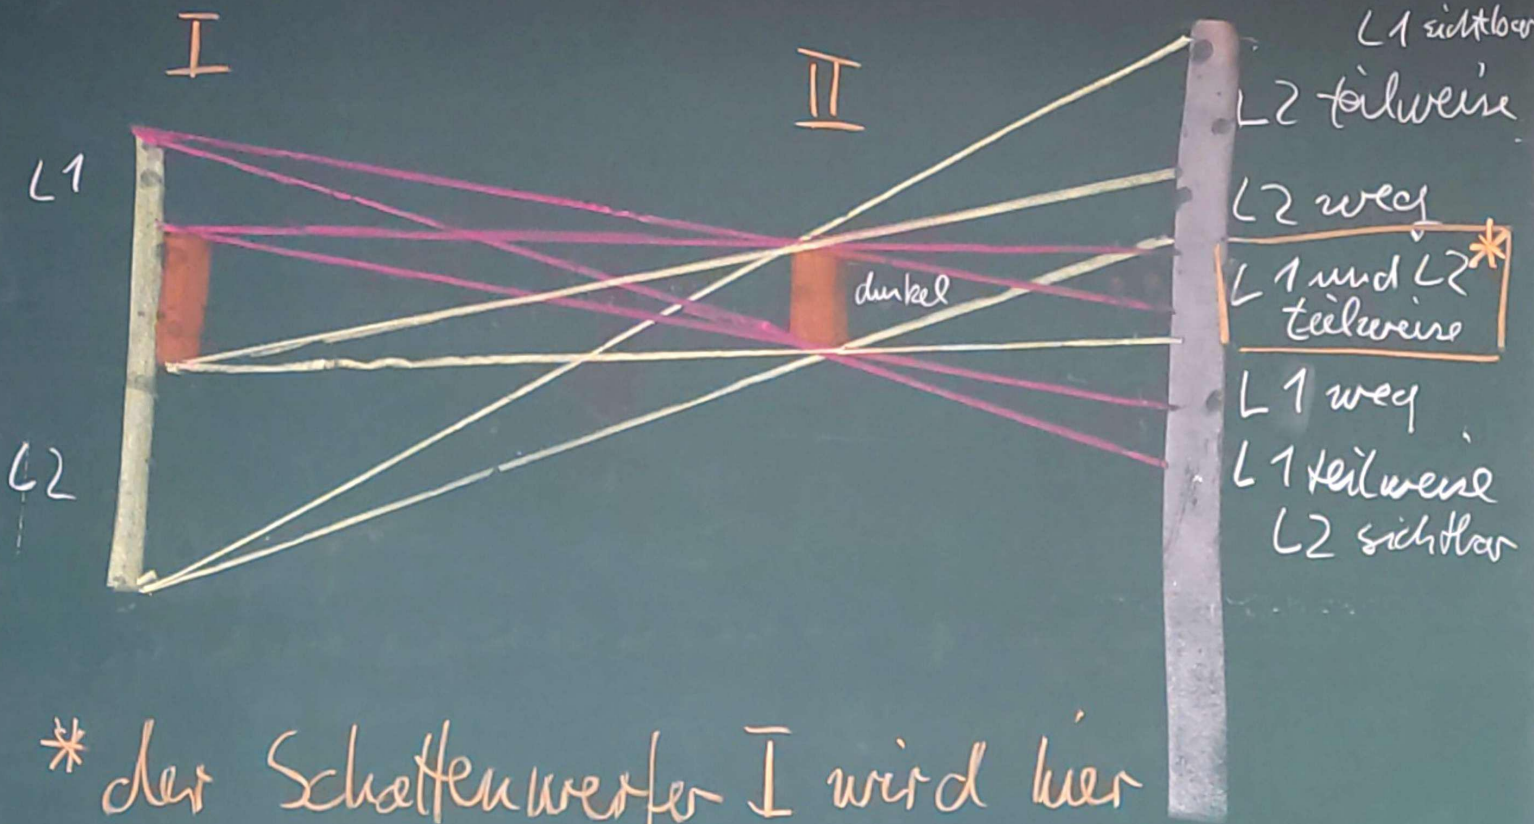 I
II
L1
L2
dunkel
L1 sichtbar
L2 teilweise
L2 weg
L1 und L2 *
teilweise
L1 weg
L1 teilweise
L2 sichtbar
* der Schattenwerfer I wird hier